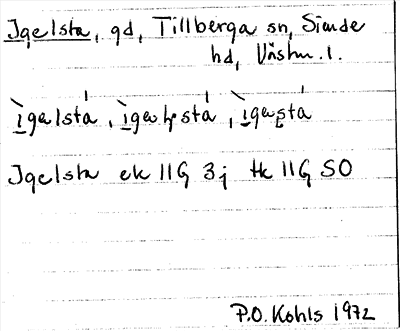 Igelsta, gd, Tillberga sn, Siende
hd, Västm. l.
ìgelsta, ìgelsta, ìgesta
Igelsta ek 11G 3j tk 11G SO
P.O. Kohls 1972